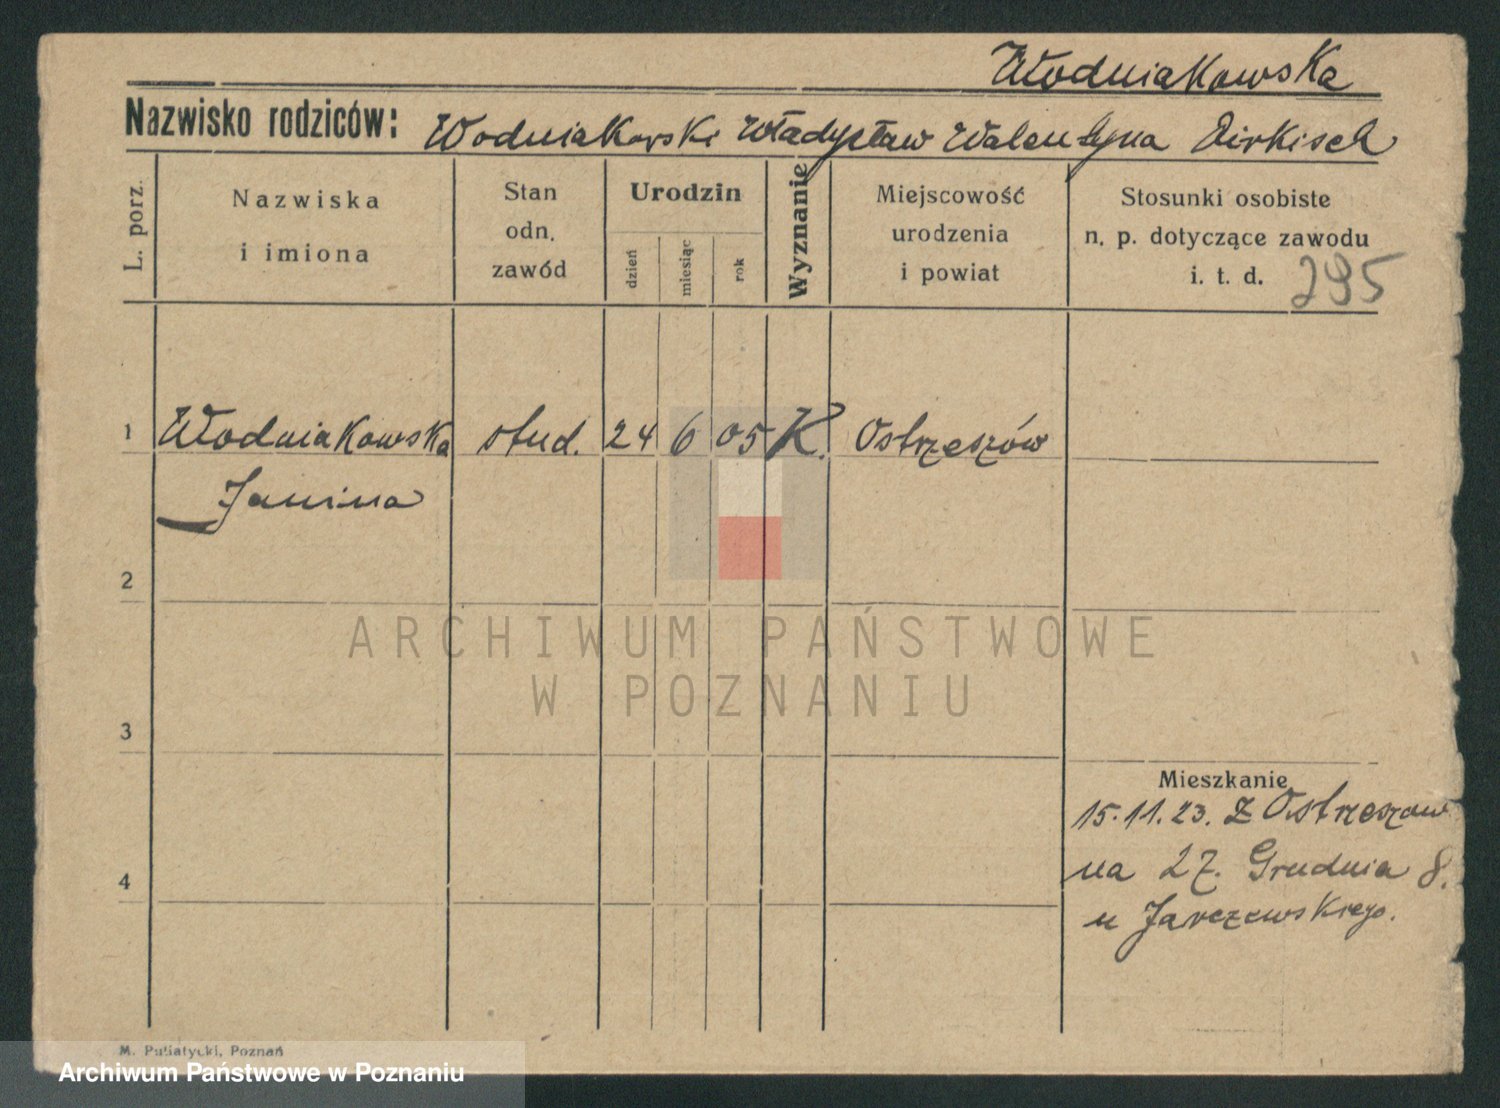 Włodniakowska
Nazwisko rodziców: Wodniakowski Władysław Walentyna Dirkisch
L. porz.
Nazwiska
i imiona
Stan
odn.
zawód
Urodzin
dzień
miesiąc
rok
Wyznanie
Miejscowość
urodzenia
i powiat
Stosunki osobiste
n. p. dotyczące zawodu
i. t. d. 295
1 Włodniakowska stud. 24 6 05 K. Ostrzeszów
Janina
2
ARCHIWUM PAŃSTWOWE
W POZNANIU
3
Mieszkanie
15.11.23. z Ostrzeszow
4
na 27. Grudnia 8.
u Jarczewskiego.
M. Putiatycki, Poznań
Archiwum Państwowe w Poznaniu